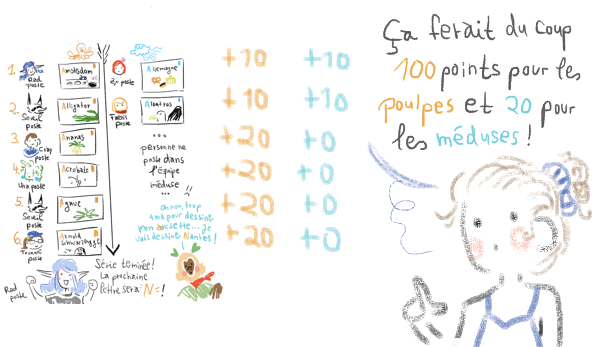 1.
Rad poste
Amsterdam
poste
Allemagne
+10
+10
2.
Seuil poste
Alligator
Taxois poste
Albatros
+10
+10
3.
poste
Ananas
...
personne ne
poste dans
l'Équipe
méduse ... !!
+20
+0
4.
Una poste
Acrobate
+20
+0
5.
Seuil poste
Agave
Oh non, trop
tard pour dessiner
mon anisette... Je
vais dessiner Nantes !
+20
+0
6.
poste
Arnold
Schwarzenegger
+20
+0
Rad
poste
Série terminée !
La prochaine
lettre sera : N !
Ça ferait du coup
100 points pour les
poulpes et 20 pour
les méduses !